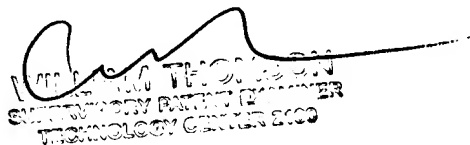 WILLIAM THOMSON
SUPERVISORY PATENT EXAMINER
TECHNOLOGY CENTER 2100